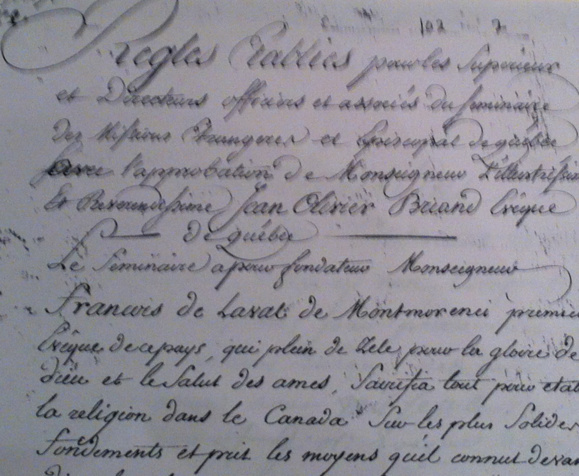 102 2
Regles Etablies pour les Superieurs
et Directeurs officiers et associés du Seminaire
des Missions Etrangeres et Episcopal de québec
avec l'approbation de Monseigneur L'illustrissime
Et Reverendissime Jean Olivier Briand Evêque
de québec
Le Seminaire a pour fondateur Monseigneur
francois de Laval de Montmorenci premier
Evêque de ce pays, qui plein de Zele pour la gloire de
dieu et le Salut des ames, Sacrifia tout pour etab
la religion dans le Canada Sur les plus Solides
fondements et prit les moyens qu'il connut devan